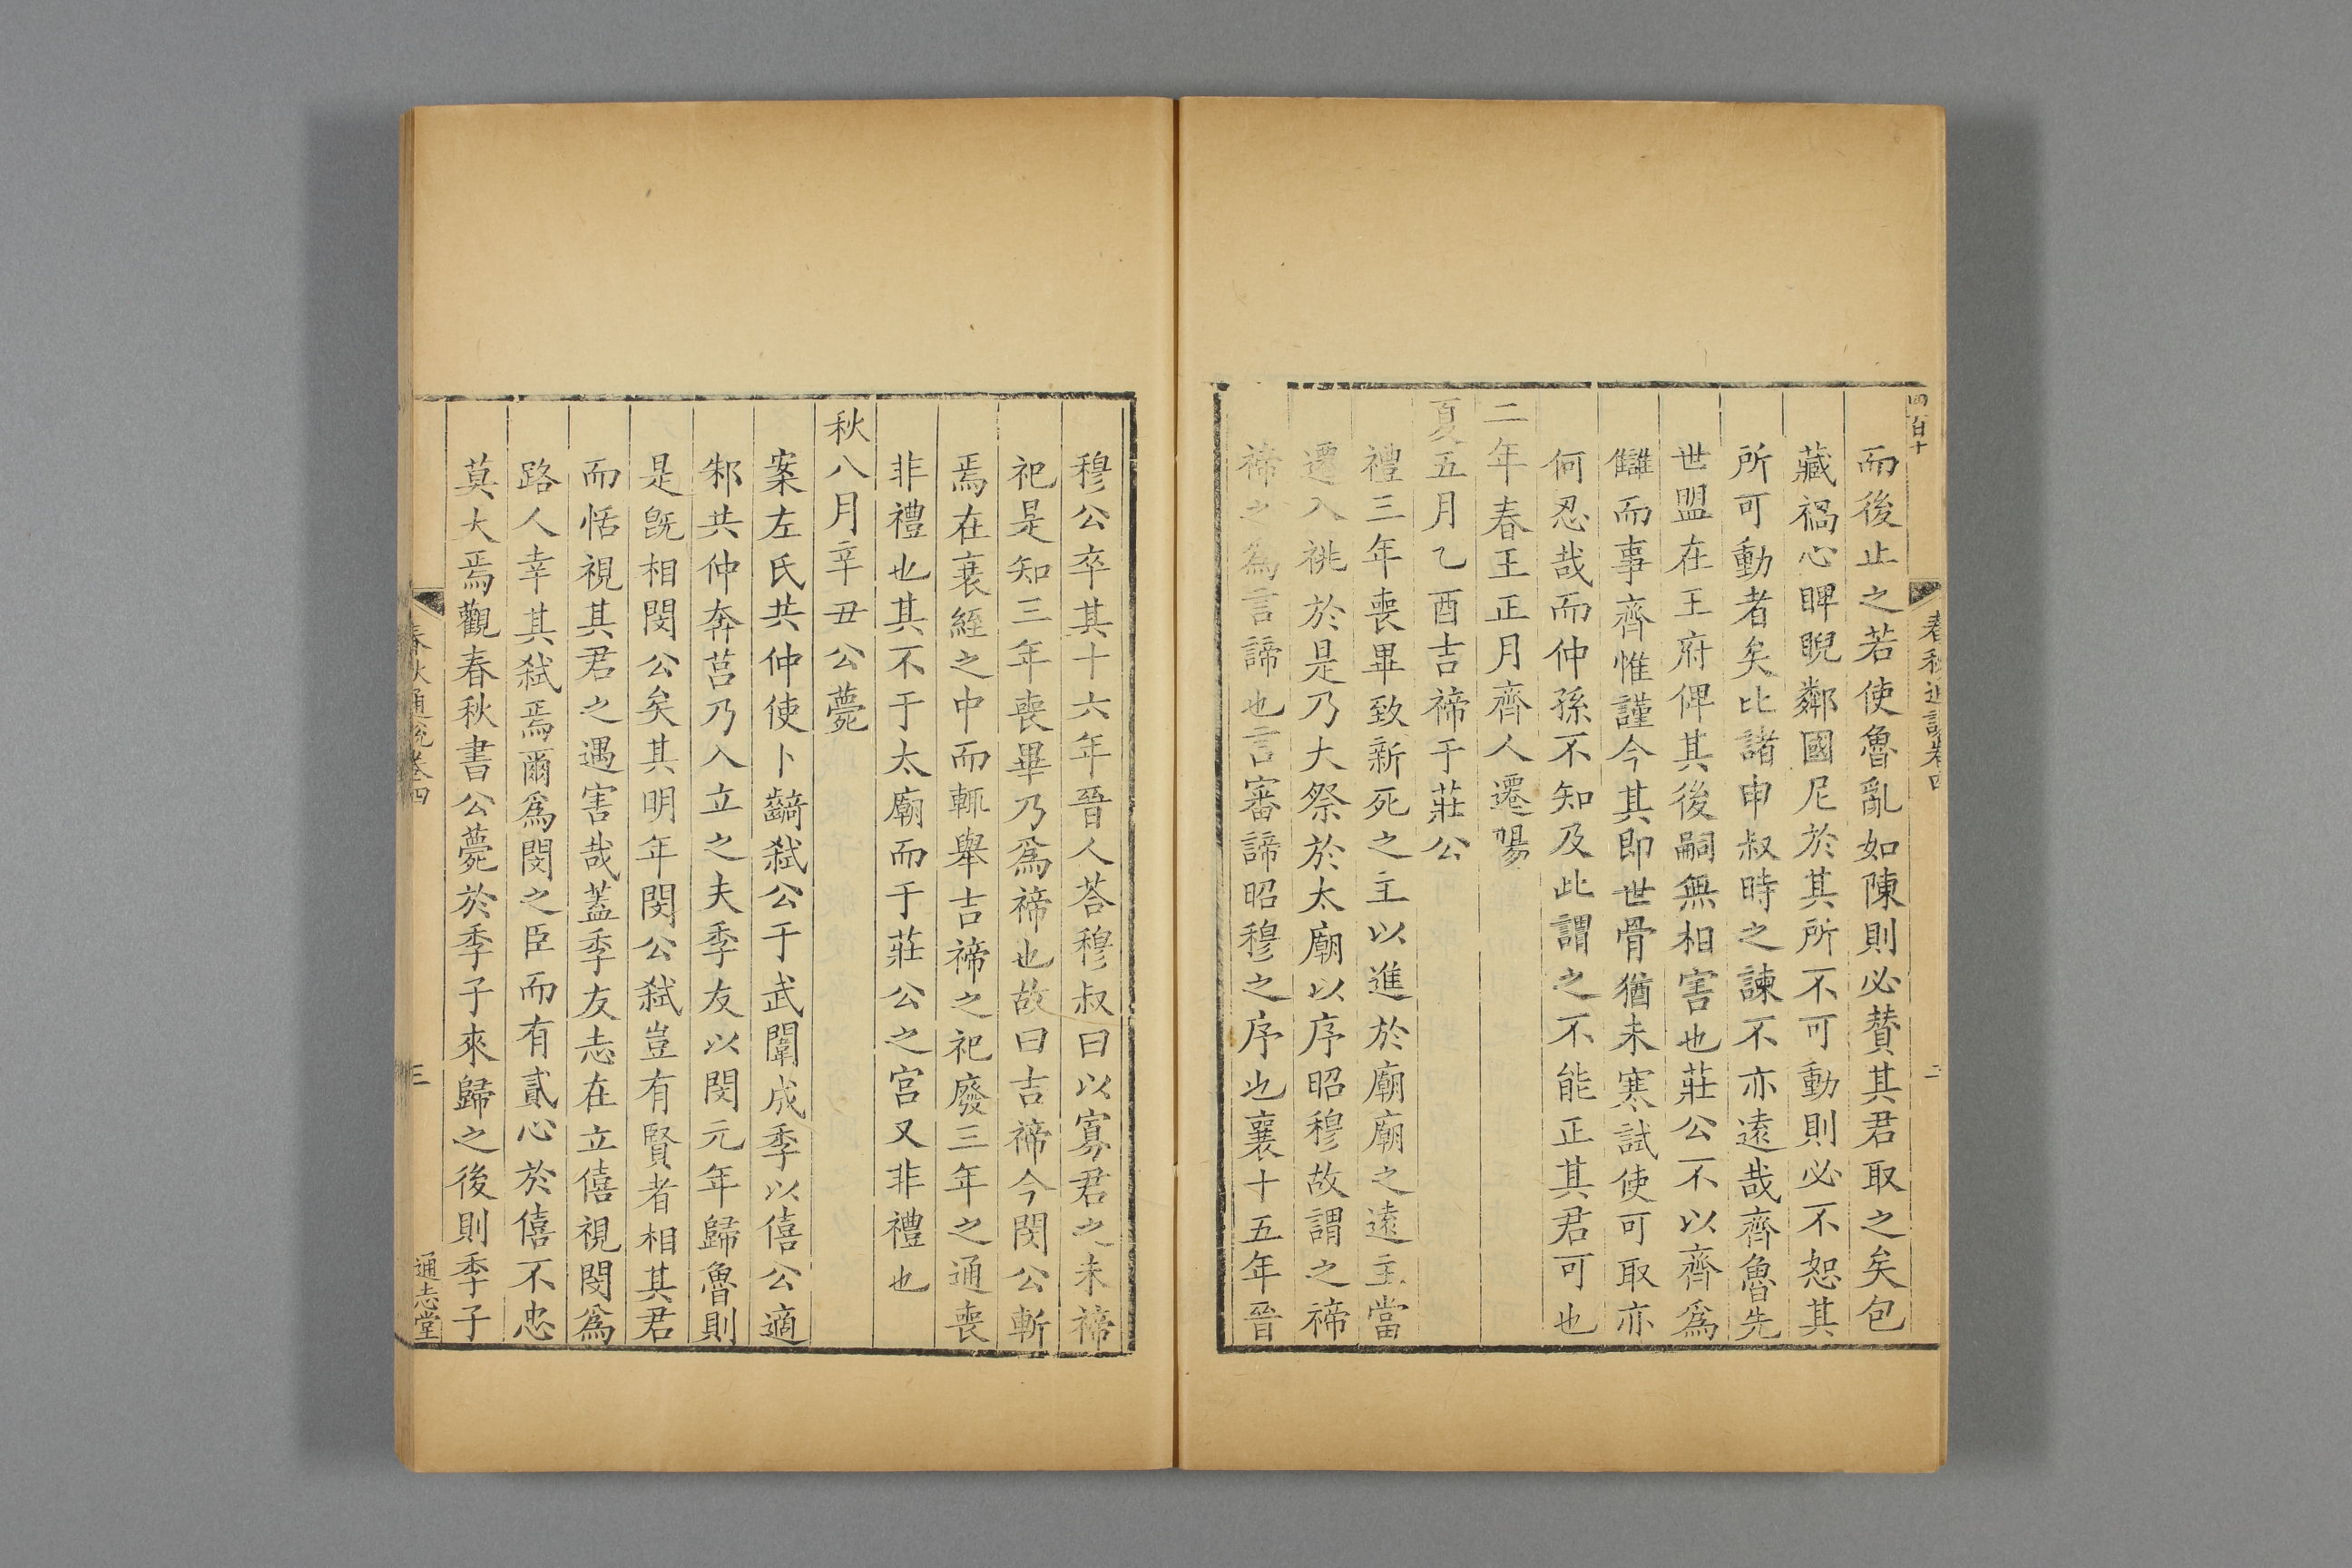 四百十
春秋通說卷四
二
而後止之若使魯亂如陳則必賛其君取之矣包
藏禍心睥睨鄰國尼於其所不可動則必不恕其
所可動者矣比諸申叔時之諫不亦遠哉齊魯先
世盟在王府俾其後嗣無相害也莊公不以齊爲
讎而事齊惟謹今其即世骨猶未寒試使可取亦
何忍哉而仲孫不知及此謂之不能正其君可也
二年春王正月齊人遷陽
夏五月乙酉吉禘于莊公
禮三年喪畢致新死之主以進於廟廟之遠主當
遷入祧於是乃大祭於太廟以序昭穆故謂之禘
禘之爲言諦也言審諦昭穆之序也襄十五年晉
穆公卒其十六年晉人荅穆叔曰以寡君之未禘
祀是知三年喪畢乃爲禘也故曰吉禘今閔公斬
焉在衰絰之中而輒舉吉禘之祀廢三年之通喪
非禮也其不于太廟而于莊公之宮又非禮也
秋八月辛丑公薨
案左氏共仲使卜齮弑公于武闈成季以僖公適
邾共仲奔莒乃入立之夫季友以閔元年歸魯則
是旣相閔公矣其明年閔公弑豈有賢者相其君
而恬視其君之遇害哉蓋季友志在立僖視閔爲
路人幸其弑焉爾爲閔之臣而有貳心於僖不忠
莫大焉觀春秋書公薨於季子來歸之後則季子
春秋通說卷四
三
通志堂